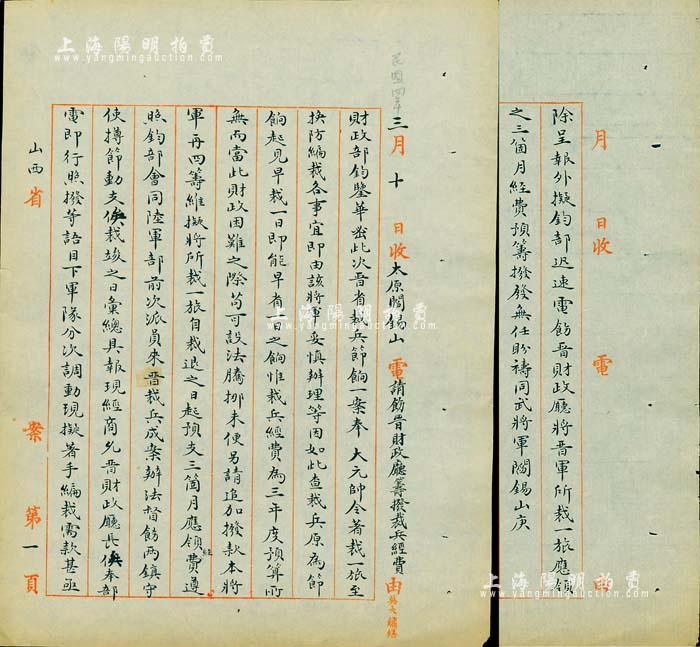 民国四年
三月十日收太原閻錫山電請飭晋財政廳籌撥裁兵經費由
財政部鈞鑒華密此次晋省裁兵節餉一案奉大元帥令著裁一旅至
換防編裁各事宜即由該將軍妥慎辦理等因如此查裁兵原為節
餉起見早裁一日即能早省一日之餉惟裁兵經費為三年度預算所
無而當此財政困難之際苟可設法騰挪未便另請追加撥款本將
軍再四籌維擬將所裁一旅自裁退之日起預支三箇月應領經費遵
照鈞部會同陸軍部前次派員來晋裁兵成案辦法督飭兩鎮守
使撙節動支俟裁竣之日彙總具報現經商允晋財政廳長俟奉部
電即行照撥等語目下軍隊分次調動現擬著手編裁需款甚亟
山西省 案 第一頁
月 日收 電 由
除呈報外擬鈞部迅速電飭晋財政廳將晋軍所裁一旅應領
之三箇月經費預籌撥發無任盼禱同武將軍閻錫山庚
上海陽明拍賣
www.yangmingauction.com
上海陽明拍賣
www.yangmingauction.com